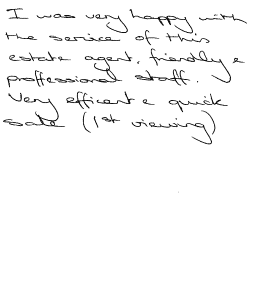 I was very happy with
the service of this
estate agent, friendly &
proffessional staff.
Very efficent & quick
sale (1st viewing)